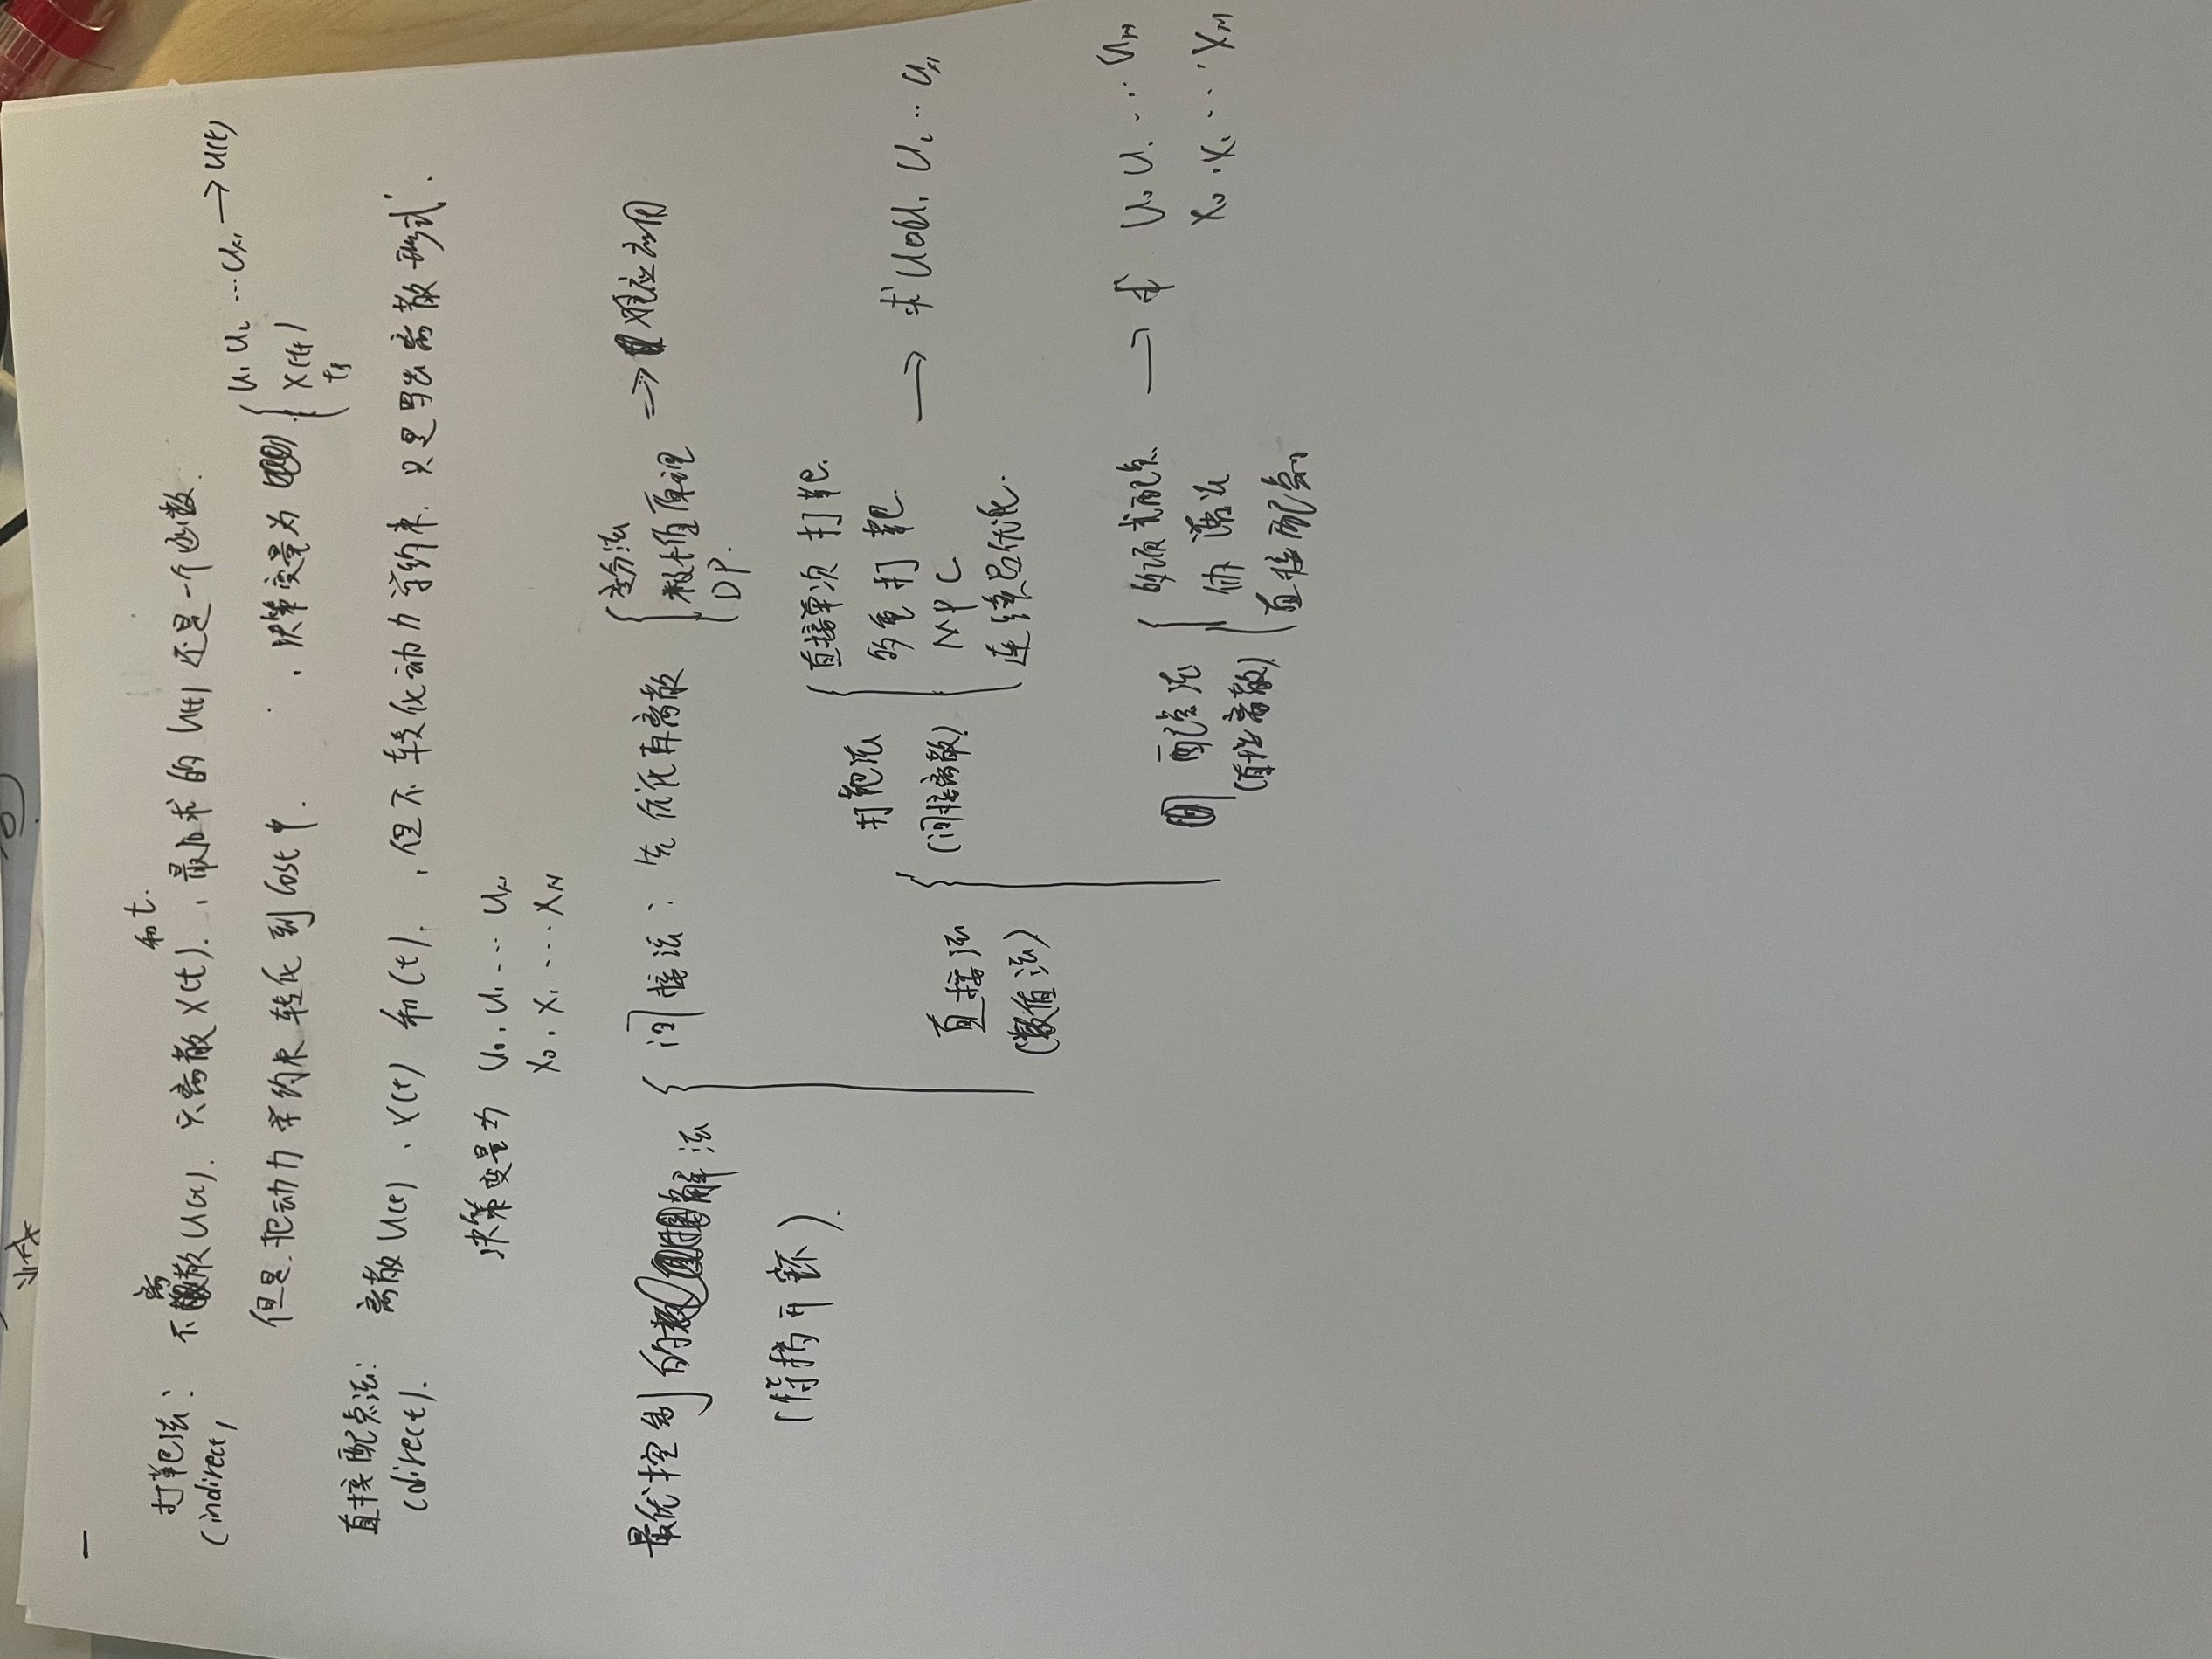 一
打靶法: 不离散 U(t). 只离散 X(t). 和 t. , 最后求的 U(t) 还是一个函数.
(indirect)
但是. 把动力学约束转化到 Cost 中. , 决策变量为 { U₁ U₂ … U_N → U(t)
X(tf)
tf
直接配点法: 离散 U(t) . X(t) 和 (t). , 但不转化动力学约束. 只是写出离散形式.
(direct).
决策变量为 U₀ . U₁ … U_N
X₀ . X₁ … X_N
最优控制的解法 { 间接法: 先优化再离散 { 变分法
极大值原理 ⇒ 难应用
DP.
直接法
(数值法)
打靶法
(间接离散)
直接单次打靶.
多重打靶.
MPC → 求 U₀ U₁ U₂ .. U_N
配点法
(直接离散)
多项式配点 → 求 U₀ U₁ … U_N
伪谱法 X₀ . X₁ … X_N
直接配点